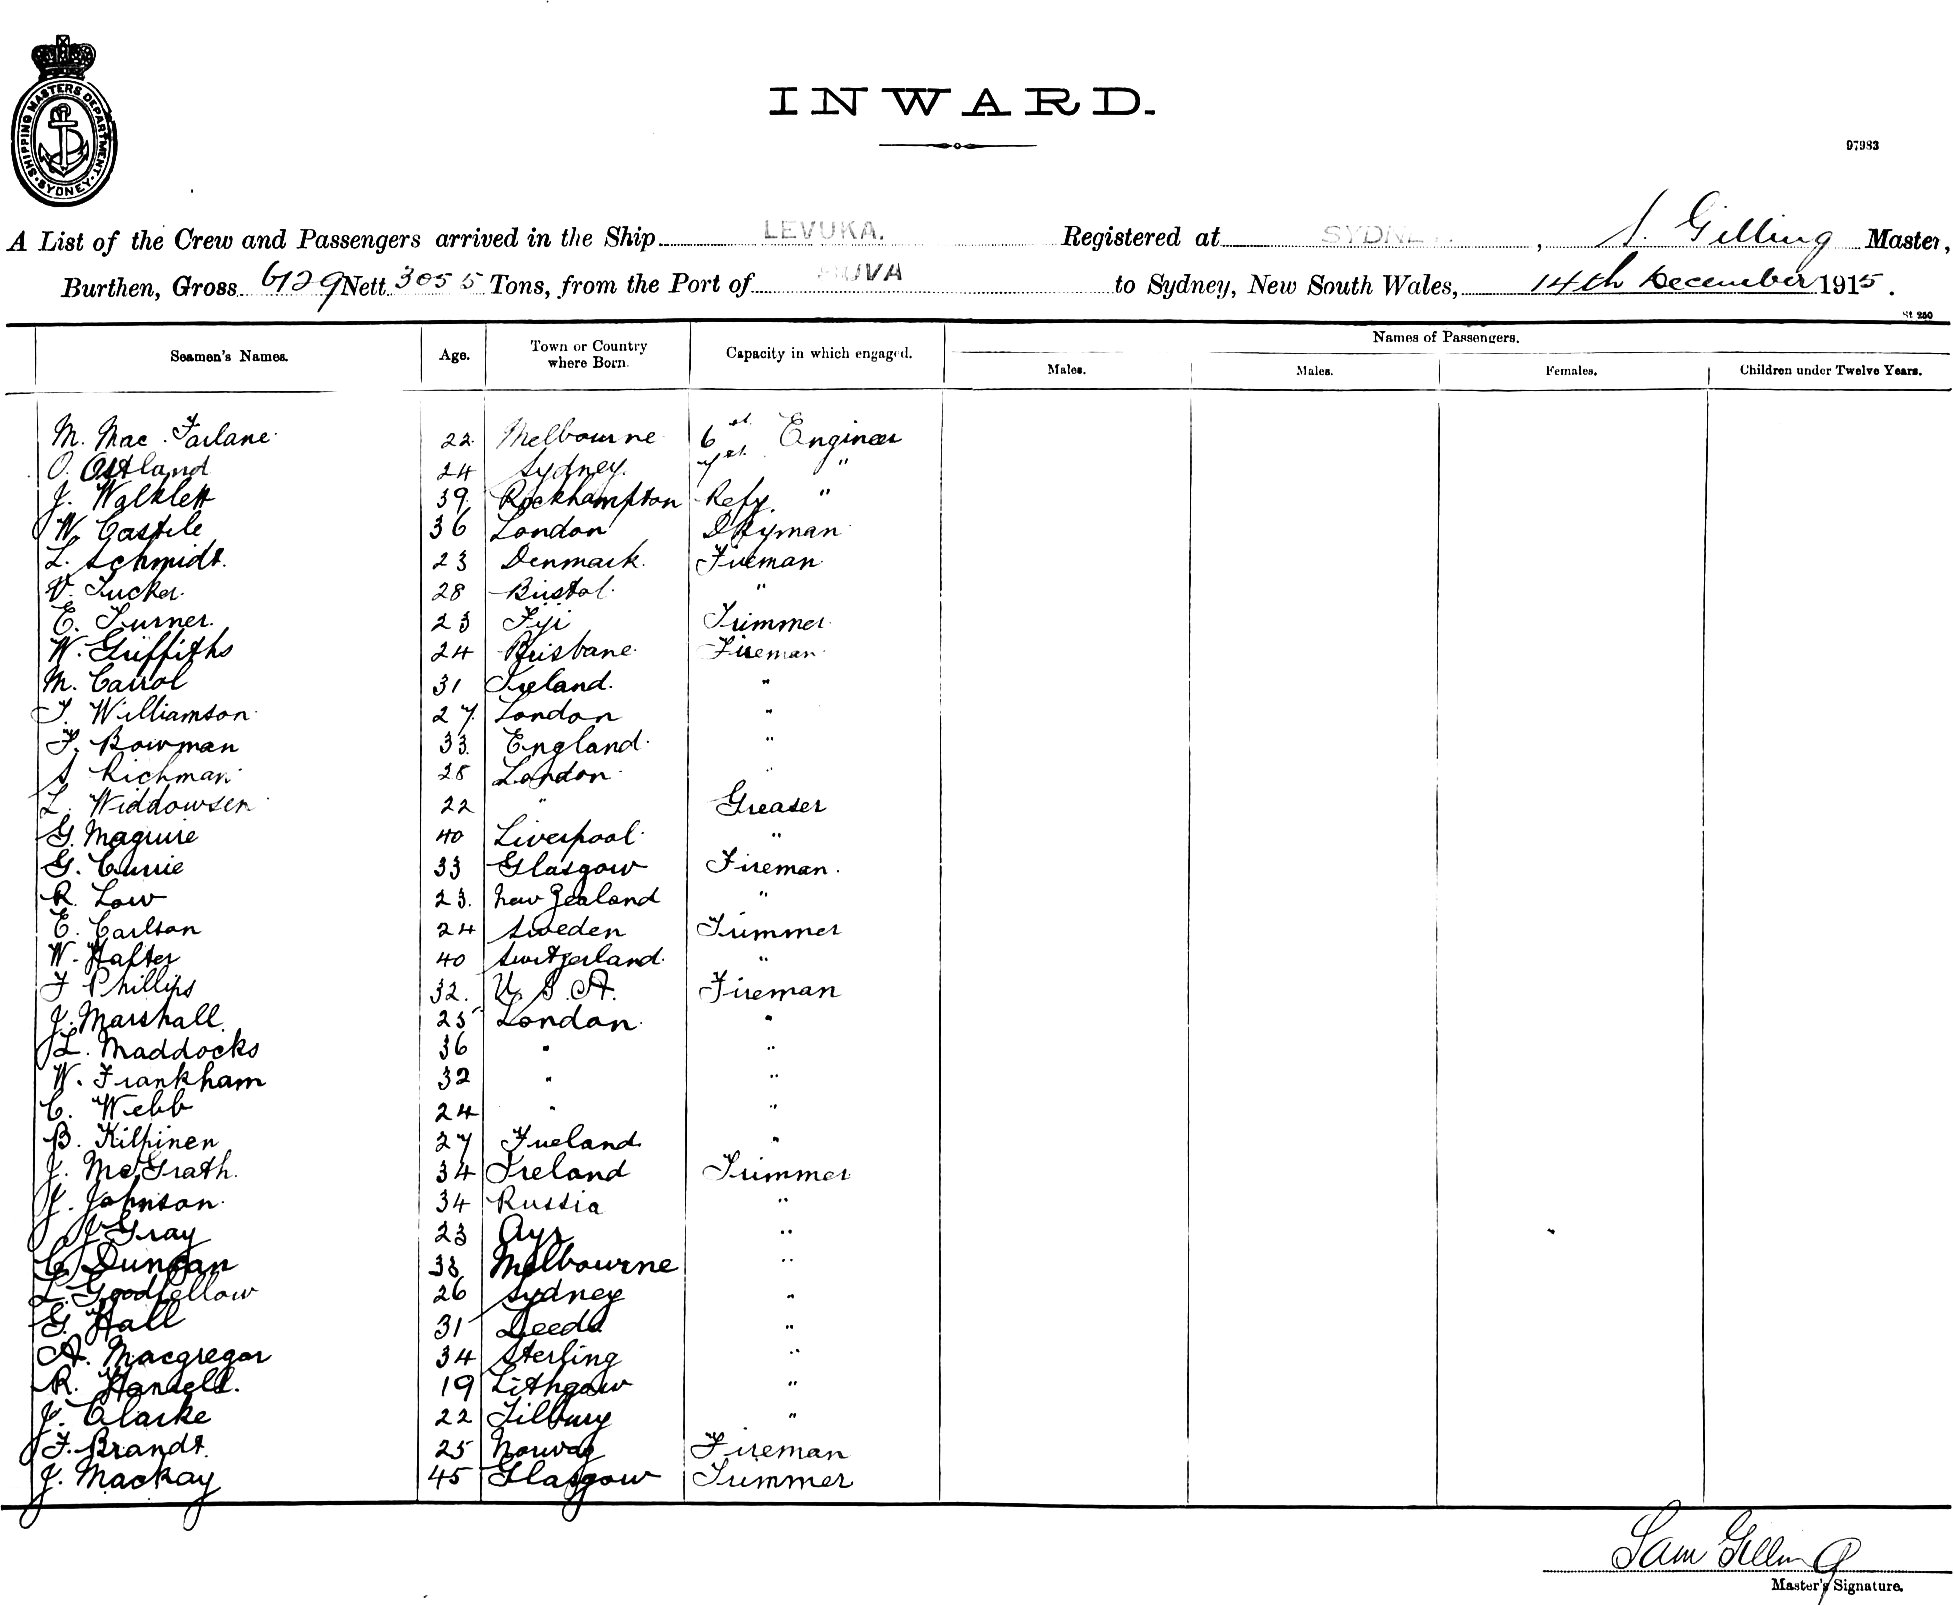 SHIPPING MASTERS DEPARTMENT. SYDNEY
INWARD.
97983
A List of the Crew and Passengers arrived in the Ship LEVUKA. Registered at SYDNEY, S. Gilling Master,
Burthen, Gross 6129 Nett 3055 Tons, from the Port of SUVA to Sydney, New South Wales, 14th December 1915.
St 250
Seamen's Names. Age. Town or Country where Born. Capacity in which engaged. Names of Passengers.
Males. Males. Females. Children under Twelve Years.
M. Mac Farlane 22 Melbourne 6 Engineer
O. Ostland 24 Sydney. 7 "
J. Walklett 39 Rockhampton Refg. "
W. Castile 36 London Dkyman
L. Schmidt. 23 Denmark. Fireman
V. Tucker. 28 Bristol. "
E. Turner. 23 Fiji Trimmer
W. Griffiths 24 Brisbane Fireman
M. Carrol 31 Ireland. "
T. Williamson 27 London "
F. Bowman 33 England "
S Richman 28 London "
L. Widdowsen 22 " Greaser
G. Maguire 40 Liverpool "
G. Currie 33 Glasgow Fireman.
R. Low 23. New Zealand "
E. Carlson 24 Sweden Trimmer
W. Hafter 40 Switzerland. "
F Phillips 32. U. S. A. Fireman
J. Marshall. 25 London. "
L. Maddocks 36 " "
W. Frankham 32 " "
C. Webb 24 " "
B. Kilpinen 27 Fineland "
J. McGrath. 34 Ireland Trimmer
J. Johnson. 34 Russia "
J Gray 23 Ayr "
C Duncan 38 Melbourne "
L. Goodfellow 26 Sydney "
G. Hall 31 Leeds "
A. Macgregor 34 Sterling "
R. Hansell. 19 Lithgow "
J. Clarke 22 Tilbury "
F. Brandt. 25 Norway Fireman
J. Mackay 45 Glasgow Trimmer
Sam Gilling
Master's Signature.